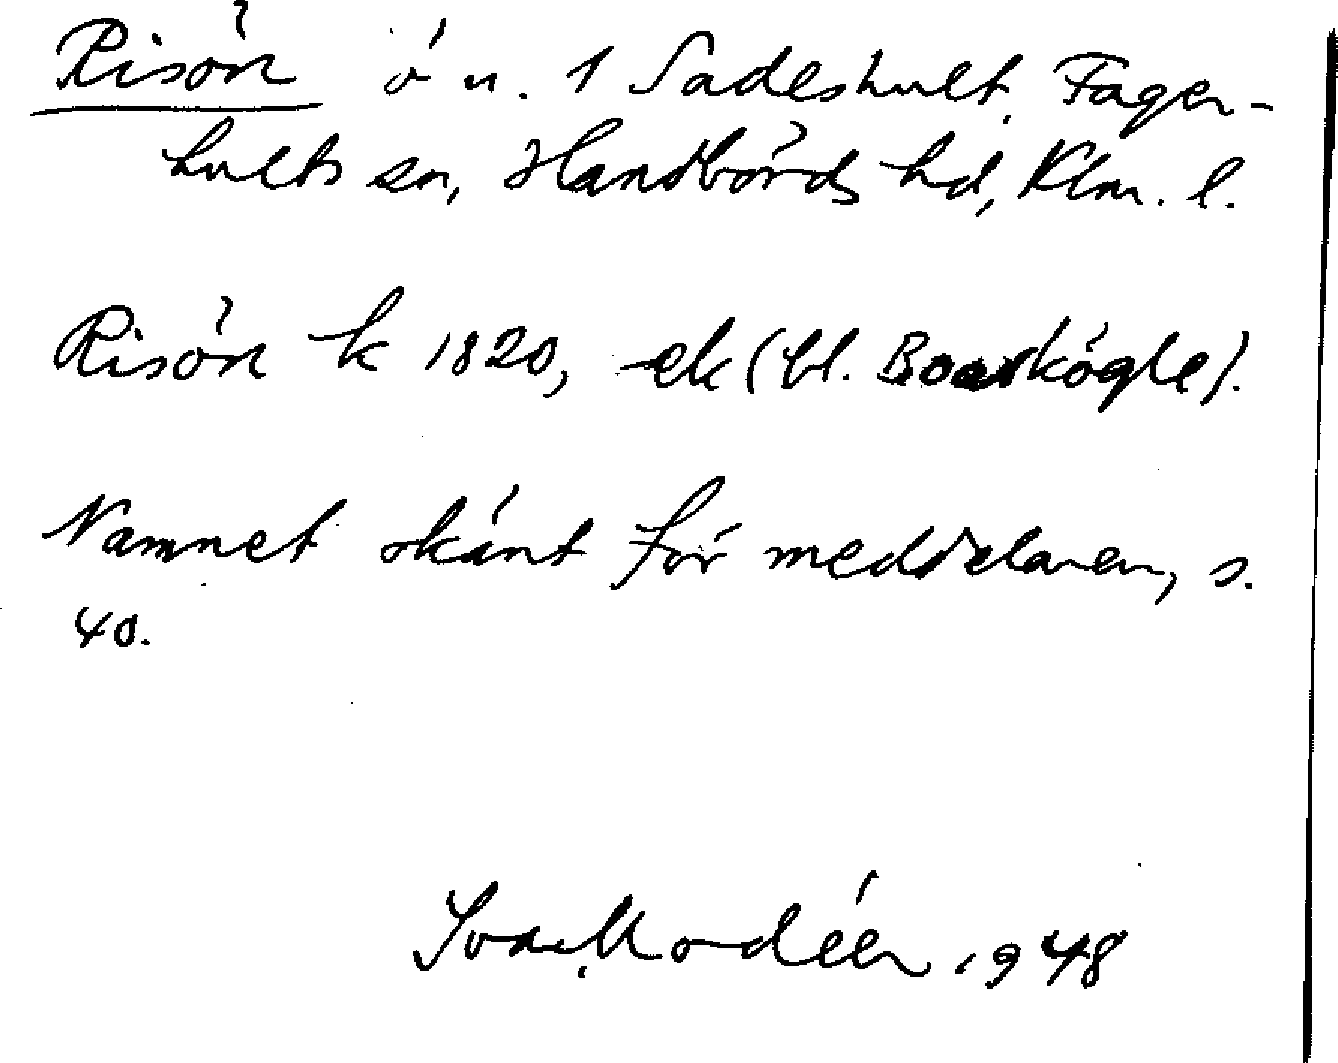 Risön ö n. 1 Sadeshult, Fager-
hults sn, Handbörds hd, Klm. l.
Risön k 1820, ek (bl. Boaskögle).
Namnet okänt för meddelaren, s.
40.
Ivar Modéer 1948